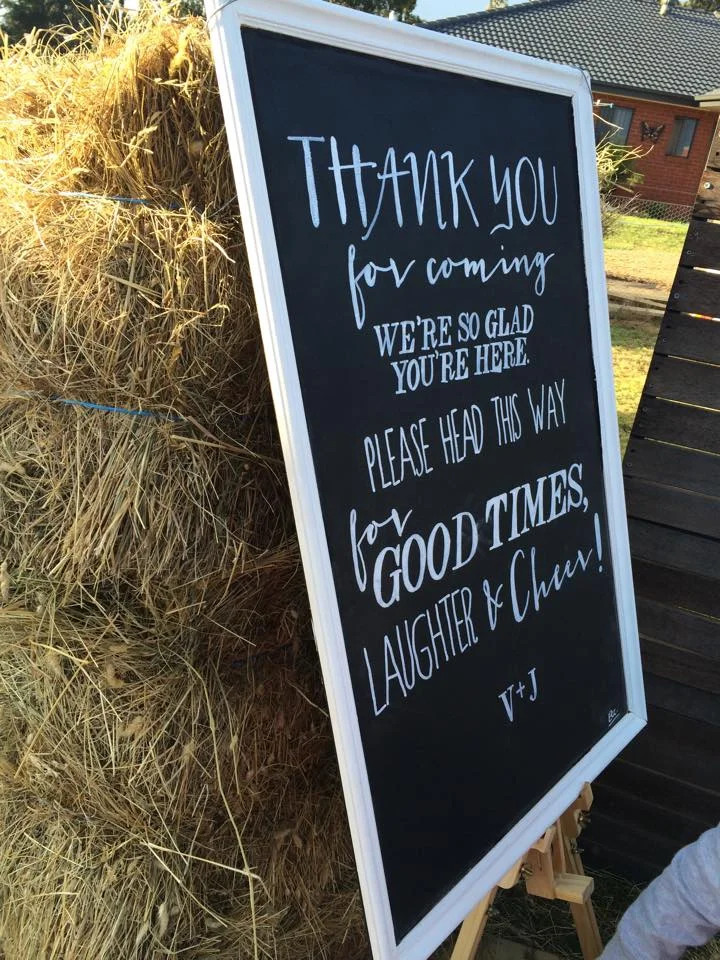 THANK YOU
for coming
WE'RE SO GLAD
YOU'RE HERE.
PLEASE HEAD THIS WAY
for
GOOD TIMES,
LAUGHTER & Cheer!
V+J